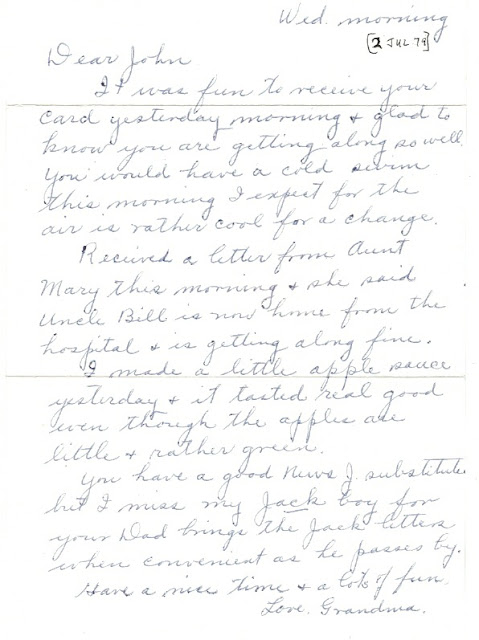 Wed. morning
[2 JUL 79]
Dear John
It was fun to receive your
card yesterday morning & glad to
know you are getting along so well.
You would have a cold swim
this morning I expect for the
air is rather cool for a change.
Received a letter from Aunt
Mary this morning & she said
Uncle Bill is now home from the
hospital & is getting along fine.
I made a little apple sauce
yesterday & it tasted real good
even though the apples are
little & rather green.
You have a good News J. substitute
but I miss my Jack boy for
your Dad brings the Jack letters
when convenient as he passes by.
Have a nice time & a lots of fun.
Love, Grandma.